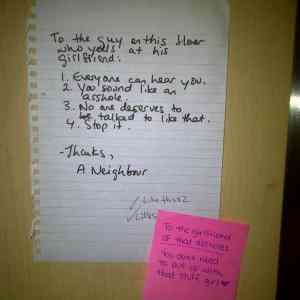 To the guy on this floor
who yells at his
girlfriend:
1. Everyone can hear you.
2. You sound like an
asshole.
3. No one deserves to
be talked to like that.
4. Stop it.
-Thanks,
A Neighbour
To the girlfriend
of that asshole:
You don't need
to put up with
that stuff, girl ♥